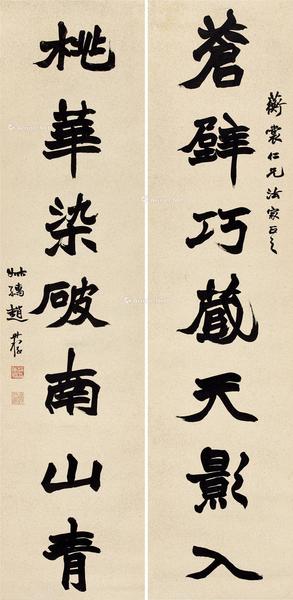 蒼壁巧藏天影入
蘅裳仁兄法家正之
桃華染破南山青
叔孺趙